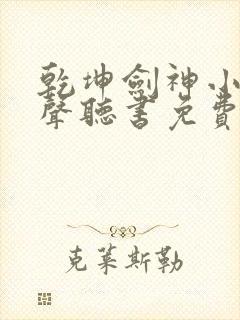 乾坤劍神小
聲聽書免費
克萊斯勒